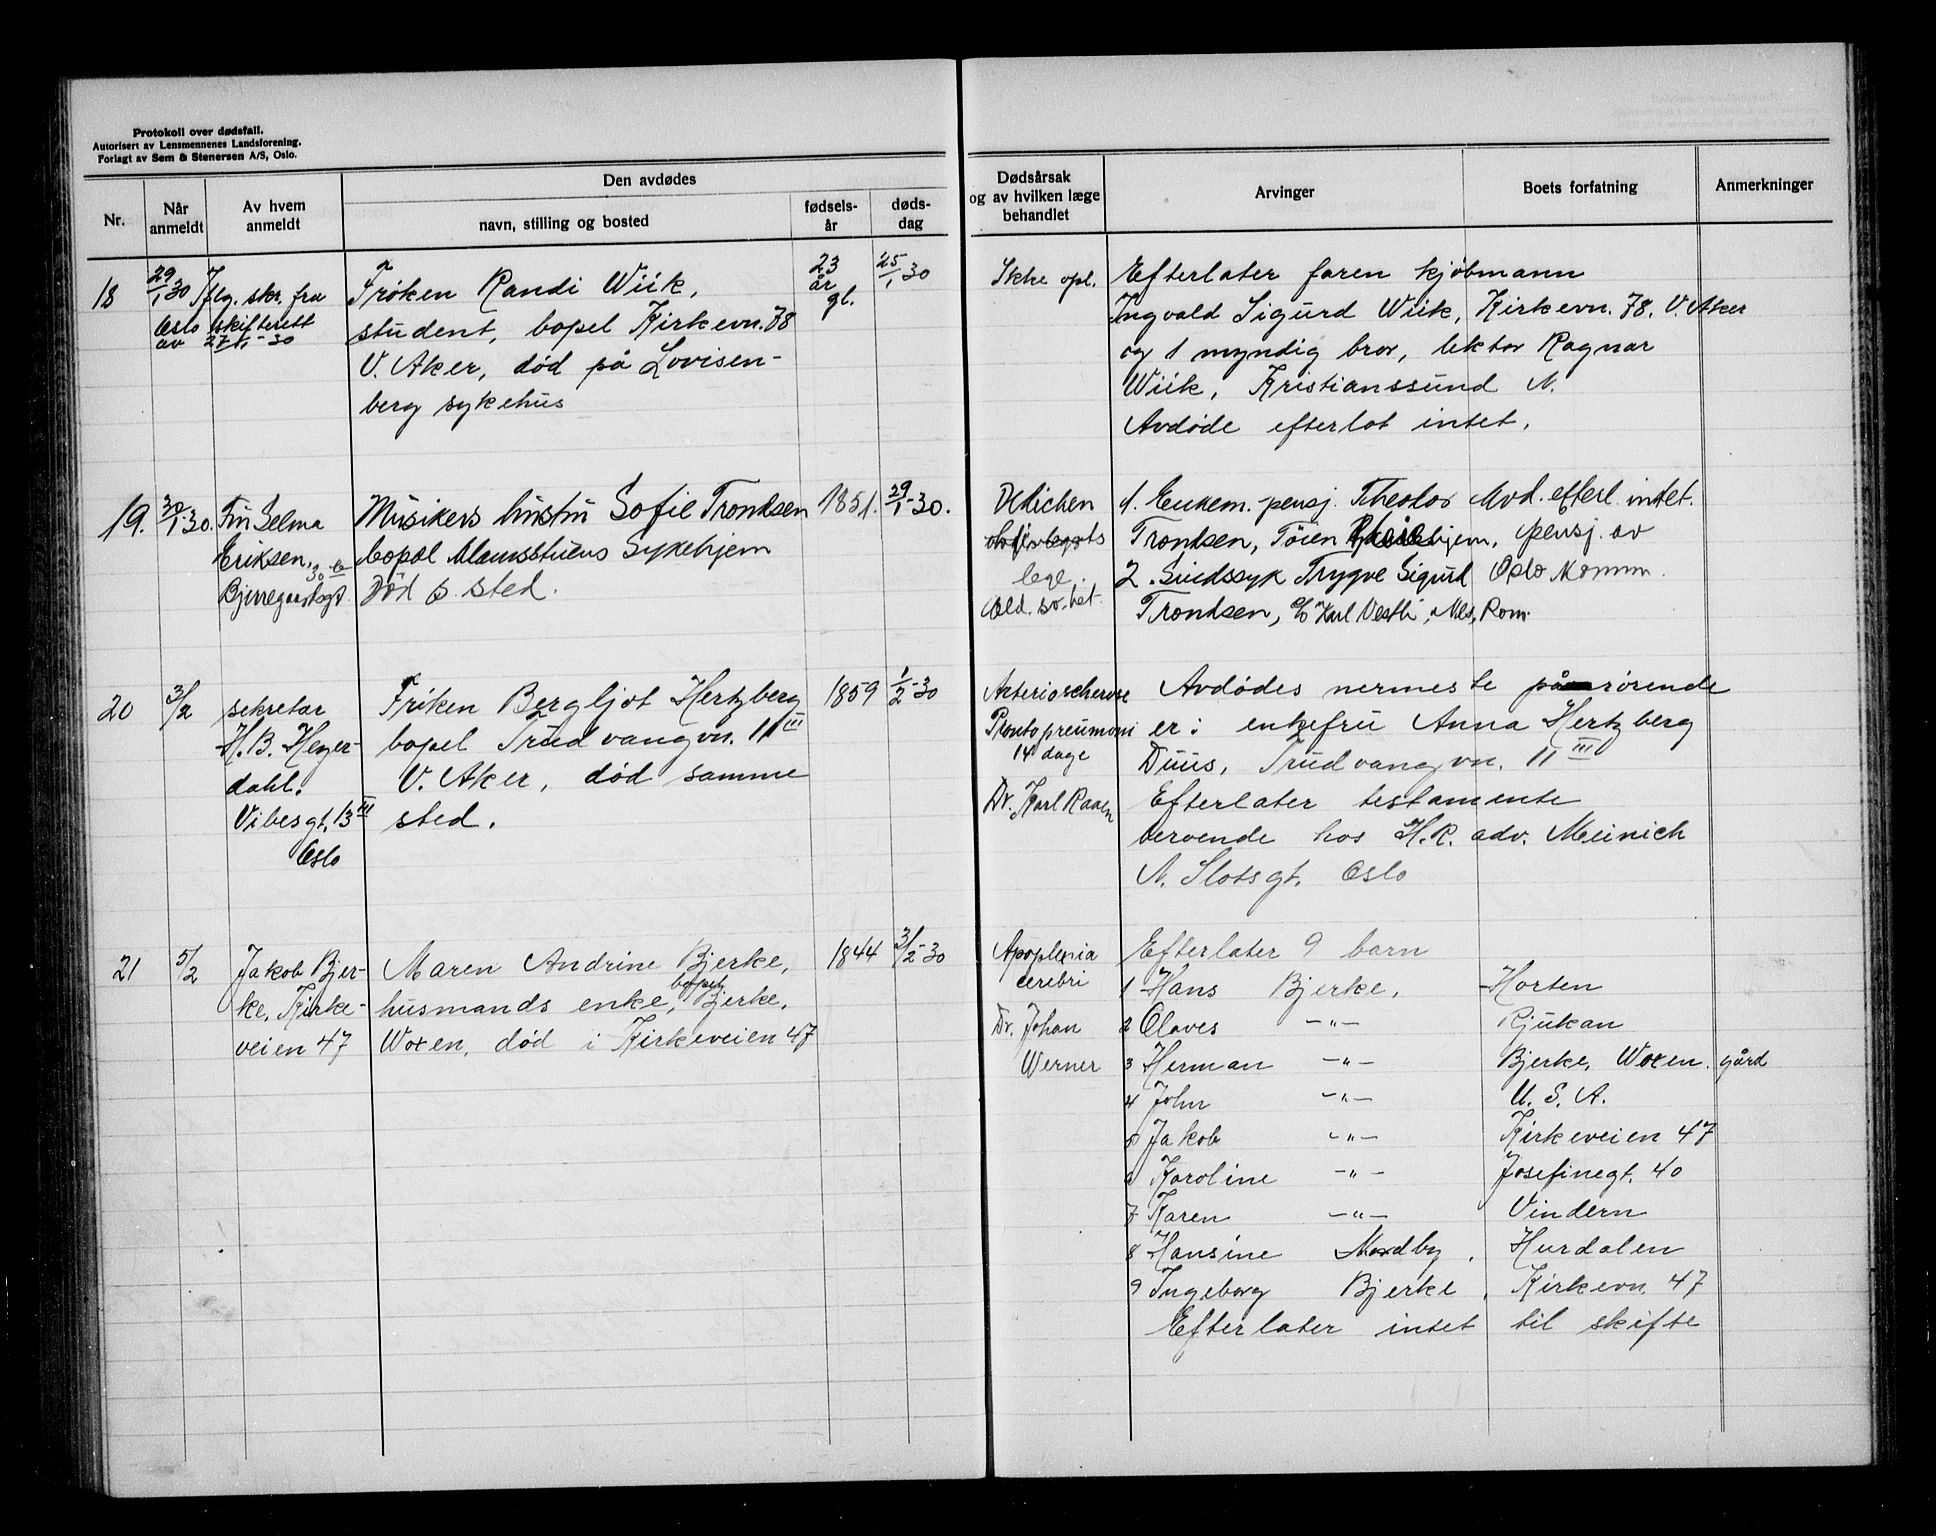 Protokoll over dødsfall.
Autorisert av Lensmennenes Landsforening.
Forlagt av Sem & Stenersen A/S, Oslo.
Nr.
Når anmeldt
Av hvem anmeldt
Den avdødes
navn, stilling og bosted
fødsels-år
døds-dag
Dødsårsak og av hvilken læge behandlet
Arvinger
Boets forfatning
Anmerkninger
18
29/1 30
Iflg. skr. fra
Oslo skifterett
av 27/1-30
Frøken Randi Wiik,
student, bopel Kirkevn. 78
V. Aker, død på Lovisen-
berg sykehus
23
år
gl.
25/1 30
Ikke opl.
Efterlater faren kjøbmann
Ingvald Sigurd Wiik, Kirkevn. 78. V. Aker
og 1 myndig bror, lektor Ragnar
Wiik, Kristianssund N.
Avdøde efterlot intet.
19.
30/1-30.
Fru Selma
Eriksen,
Bjerregaardsgt. 30
Musikers hustru Sofie Trondsen
bopæl Sykehjem
Død s. sted.
1851.
29/1-30.
lege.
Ald. sv.het.
1. Enkem. pensj. Theolor
Trondsen, Tøien hjem,
2. Sindssyk Trygve Sigurd
Trondsen, c/o Karl Vestli, Nes, Rom.
Avd. efterl. intet.
pensj. av
Oslo Komm.
20
3/2
sekretær
H. B. Heyer-
dahl.
Vibesgt. 13 III
Oslo
Frøken Bergljot Hertzberg
bopel Trudvangvn. 11 III
V. Aker, død samme
sted.
1859
1/2-30
Arterioscherose
14 dage
Dr. Karl Raaen
Avdødes nermeste pårørende
er: enkefru Anna Hertzberg
Duus, Trudvangvn. 11 III
Efterlater testamente
beroende hos H.R. adv. Meinich
N. Slotsgt. Oslo
21
5/2
Jakob Bjer-
ke, Kirke-
veien 47
Maren Andrine Bjerke,
husmands enke, bopel Bjerke,
Woxen, død i Kirkeveien 47
1844
3/2-30
Apoplexia
cerebri
Dr. Johan
Werner
Efterlater 9 barn
1 Hans Bjerke, Horten
2 Olaves -"- Rjukan
3 Herman -"- Bjerke, Woxen. gård
4 John -"- U. S. A.
5 Jakob -"- Kirkeveien 47
6 Karoline -"- Josefinegt. 40
7 Karen -"- Vindern
8 Hansine Mordby, Hurdalen
9 Ingeborg Bjerke, Kirkevn. 47
Efterlater intet til skifte